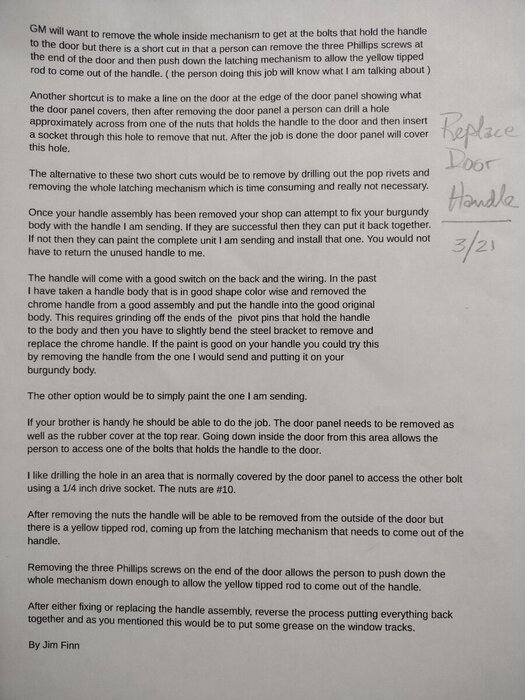 GM will want to remove the whole inside mechanism to get at the bolts that hold the handle
to the door but there is a short cut in that a person can remove the three Phillips screws at
the end of the door and then push down the latching mechanism to allow the yellow tipped
rod to come out of the handle. ( the person doing this job will know what I am talking about )
Another shortcut is to make a line on the door at the edge of the door panel showing what
the door panel covers, then after removing the door panel a person can drill a hole
approximately across from one of the nuts that holds the handle to the door and then insert
a socket through this hole to remove that nut. After the job is done the door panel will cover
this hole.
Replace
Door
Handle
3/21
The alternative to these two short cuts would be to remove by drilling out the pop rivets and
removing the whole latching mechanism which is time consuming and really not necessary.
Once your handle assembly has been removed your shop can attempt to fix your burgundy
body with the handle I am sending. If they are successful then they can put it back together.
If not then they can paint the complete unit I am sending and install that one. You would not
have to return the unused handle to me.
The handle will come with a good switch on the back and the wiring. In the past
I have taken a handle body that is in good shape color wise and removed the
chrome handle from a good assembly and put the handle into the good original
body. This requires grinding off the ends of the  pivot pins that hold the handle
to the body and then you have to slightly bend the steel bracket to remove and
replace the chrome handle. If the paint is good on your handle you could try this
by removing the handle from the one I would send and putting it on your
burgundy body.
The other option would be to simply paint the one I am sending.
If your brother is handy he should be able to do the job. The door panel needs to be removed as
well as the rubber cover at the top rear. Going down inside the door from this area allows the
person to access one of the bolts that holds the handle to the door.
I like drilling the hole in an area that is normally covered by the door panel to access the other bolt
using a 1/4 inch drive socket. The nuts are #10.
After removing the nuts the handle will be able to be removed from the outside of the door but
there is a yellow tipped rod, coming up from the latching mechanism that needs to come out of the
handle.
Removing the three Phillips screws on the end of the door allows the person to push down the
whole mechanism down enough to allow the yellow tipped rod to come out of the handle.
After either fixing or replacing the handle assembly, reverse the process putting everything back
together and as you mentioned this would be to put some grease on the window tracks.
By Jim Finn